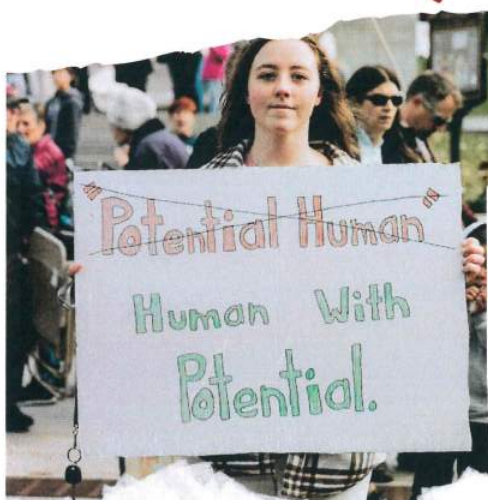 "Potential Human"
Human With
Potential.